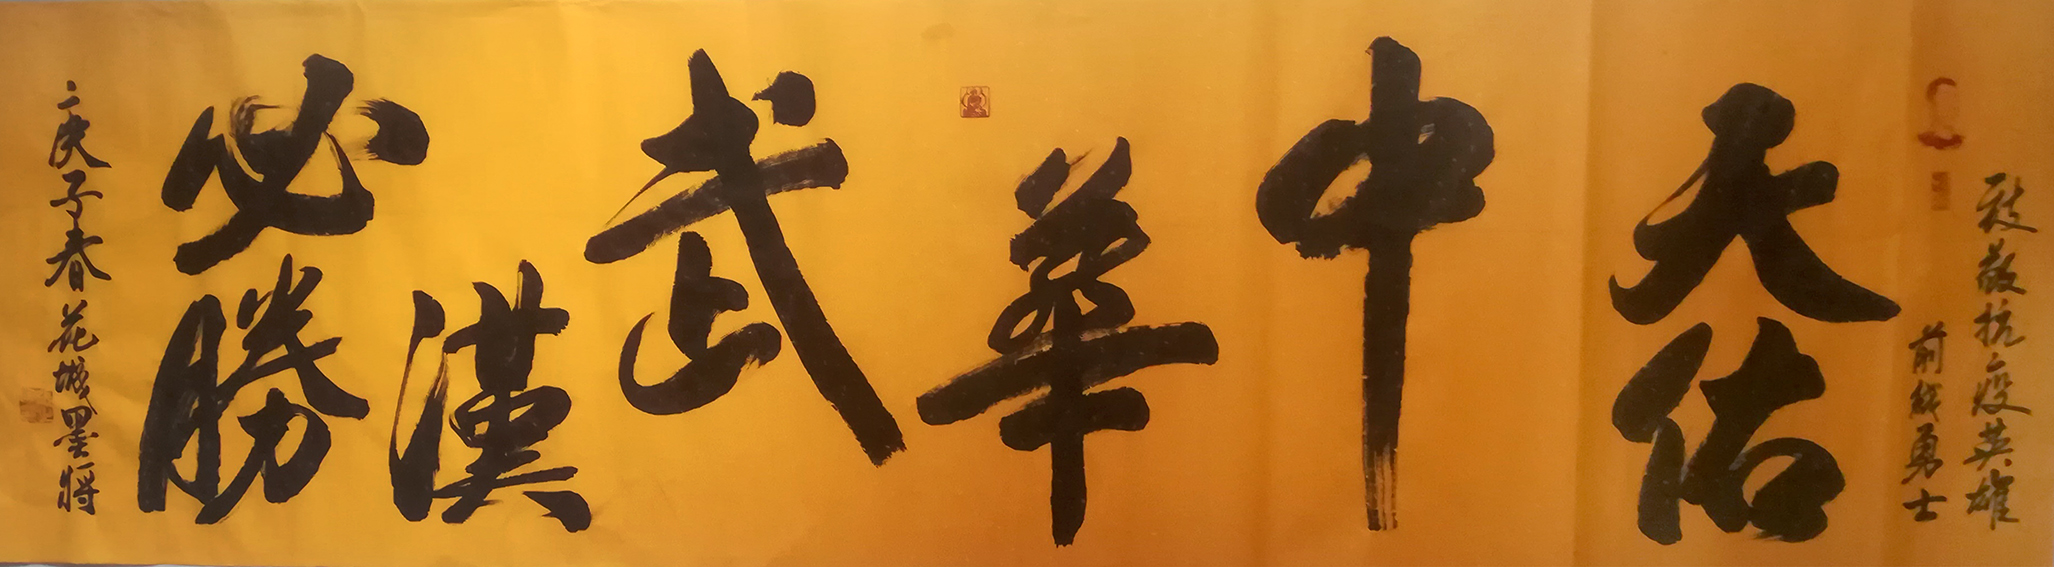 致敬抗疫英雄
前线勇士
天佑中華武漢必勝
庚子春花城墨將